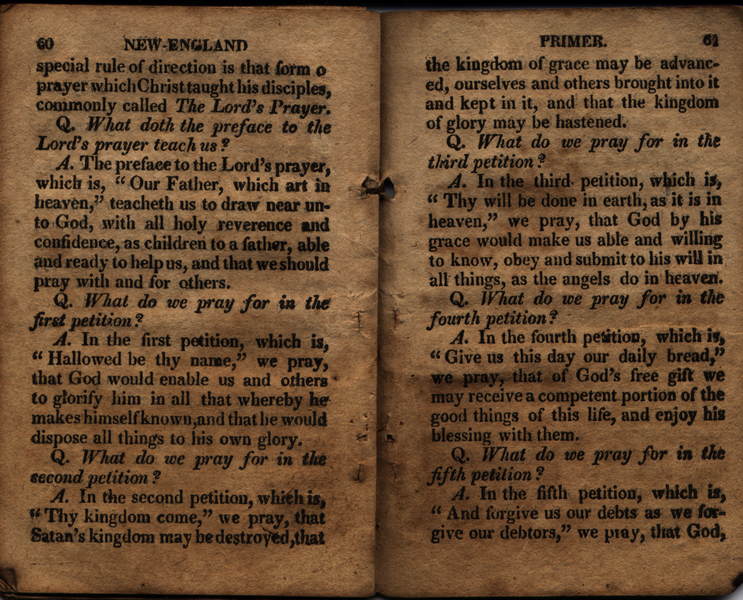 60 NEW-ENGLAND
special rule of direction is that form o
prayer which Christ taught his disciples,
commonly called The Lord's Prayer.
Q. What doth the preface to the
Lord's prayer teach us?
A. The preface to the Lord's prayer,
which is, "Our Father, which art in
heaven," teacheth us to draw near un-
to God, with all holy reverence and
confidence, as children to a father, able
and ready to help us, and that we should
pray with and for others.
Q. What do we pray for in the
first petition?
A. In the first petition, which is,
"Hallowed be thy name," we pray,
that God would enable us and others
to glorify him in all that whereby he
makes himself known, and that he would
dispose all things to his own glory.
Q. What do we pray for in the
second petition?
A. In the second petition, which is,
"Thy kingdom come," we pray, that
Satan's kingdom may be destroyed, that
PRIMER. 61
the kingdom of grace may be advanc-
ed, ourselves and others brought into it
and kept in it, and that the kingdom
of glory may be hastened.
Q. What do we pray for in the
third petition?
A. In the third petition, which is,
"Thy will be done in earth, as it is in
heaven," we pray, that God by his
grace would make us able and willing
to know, obey and submit to his will in
all things, as the angels do in heaven.
Q. What do we pray for in the
fourth petition?
A. In the fourth petition, which is,
"Give us this day our daily bread,"
we pray, that of God's free gift we
may receive a competent portion of the
good things of this life, and enjoy his
blessing with them.
Q. What do we pray for in the
fifth petition?
A. In the fifth petition, which is,
"And forgive us our debts as we for-
give our debtors," we pray, that God,